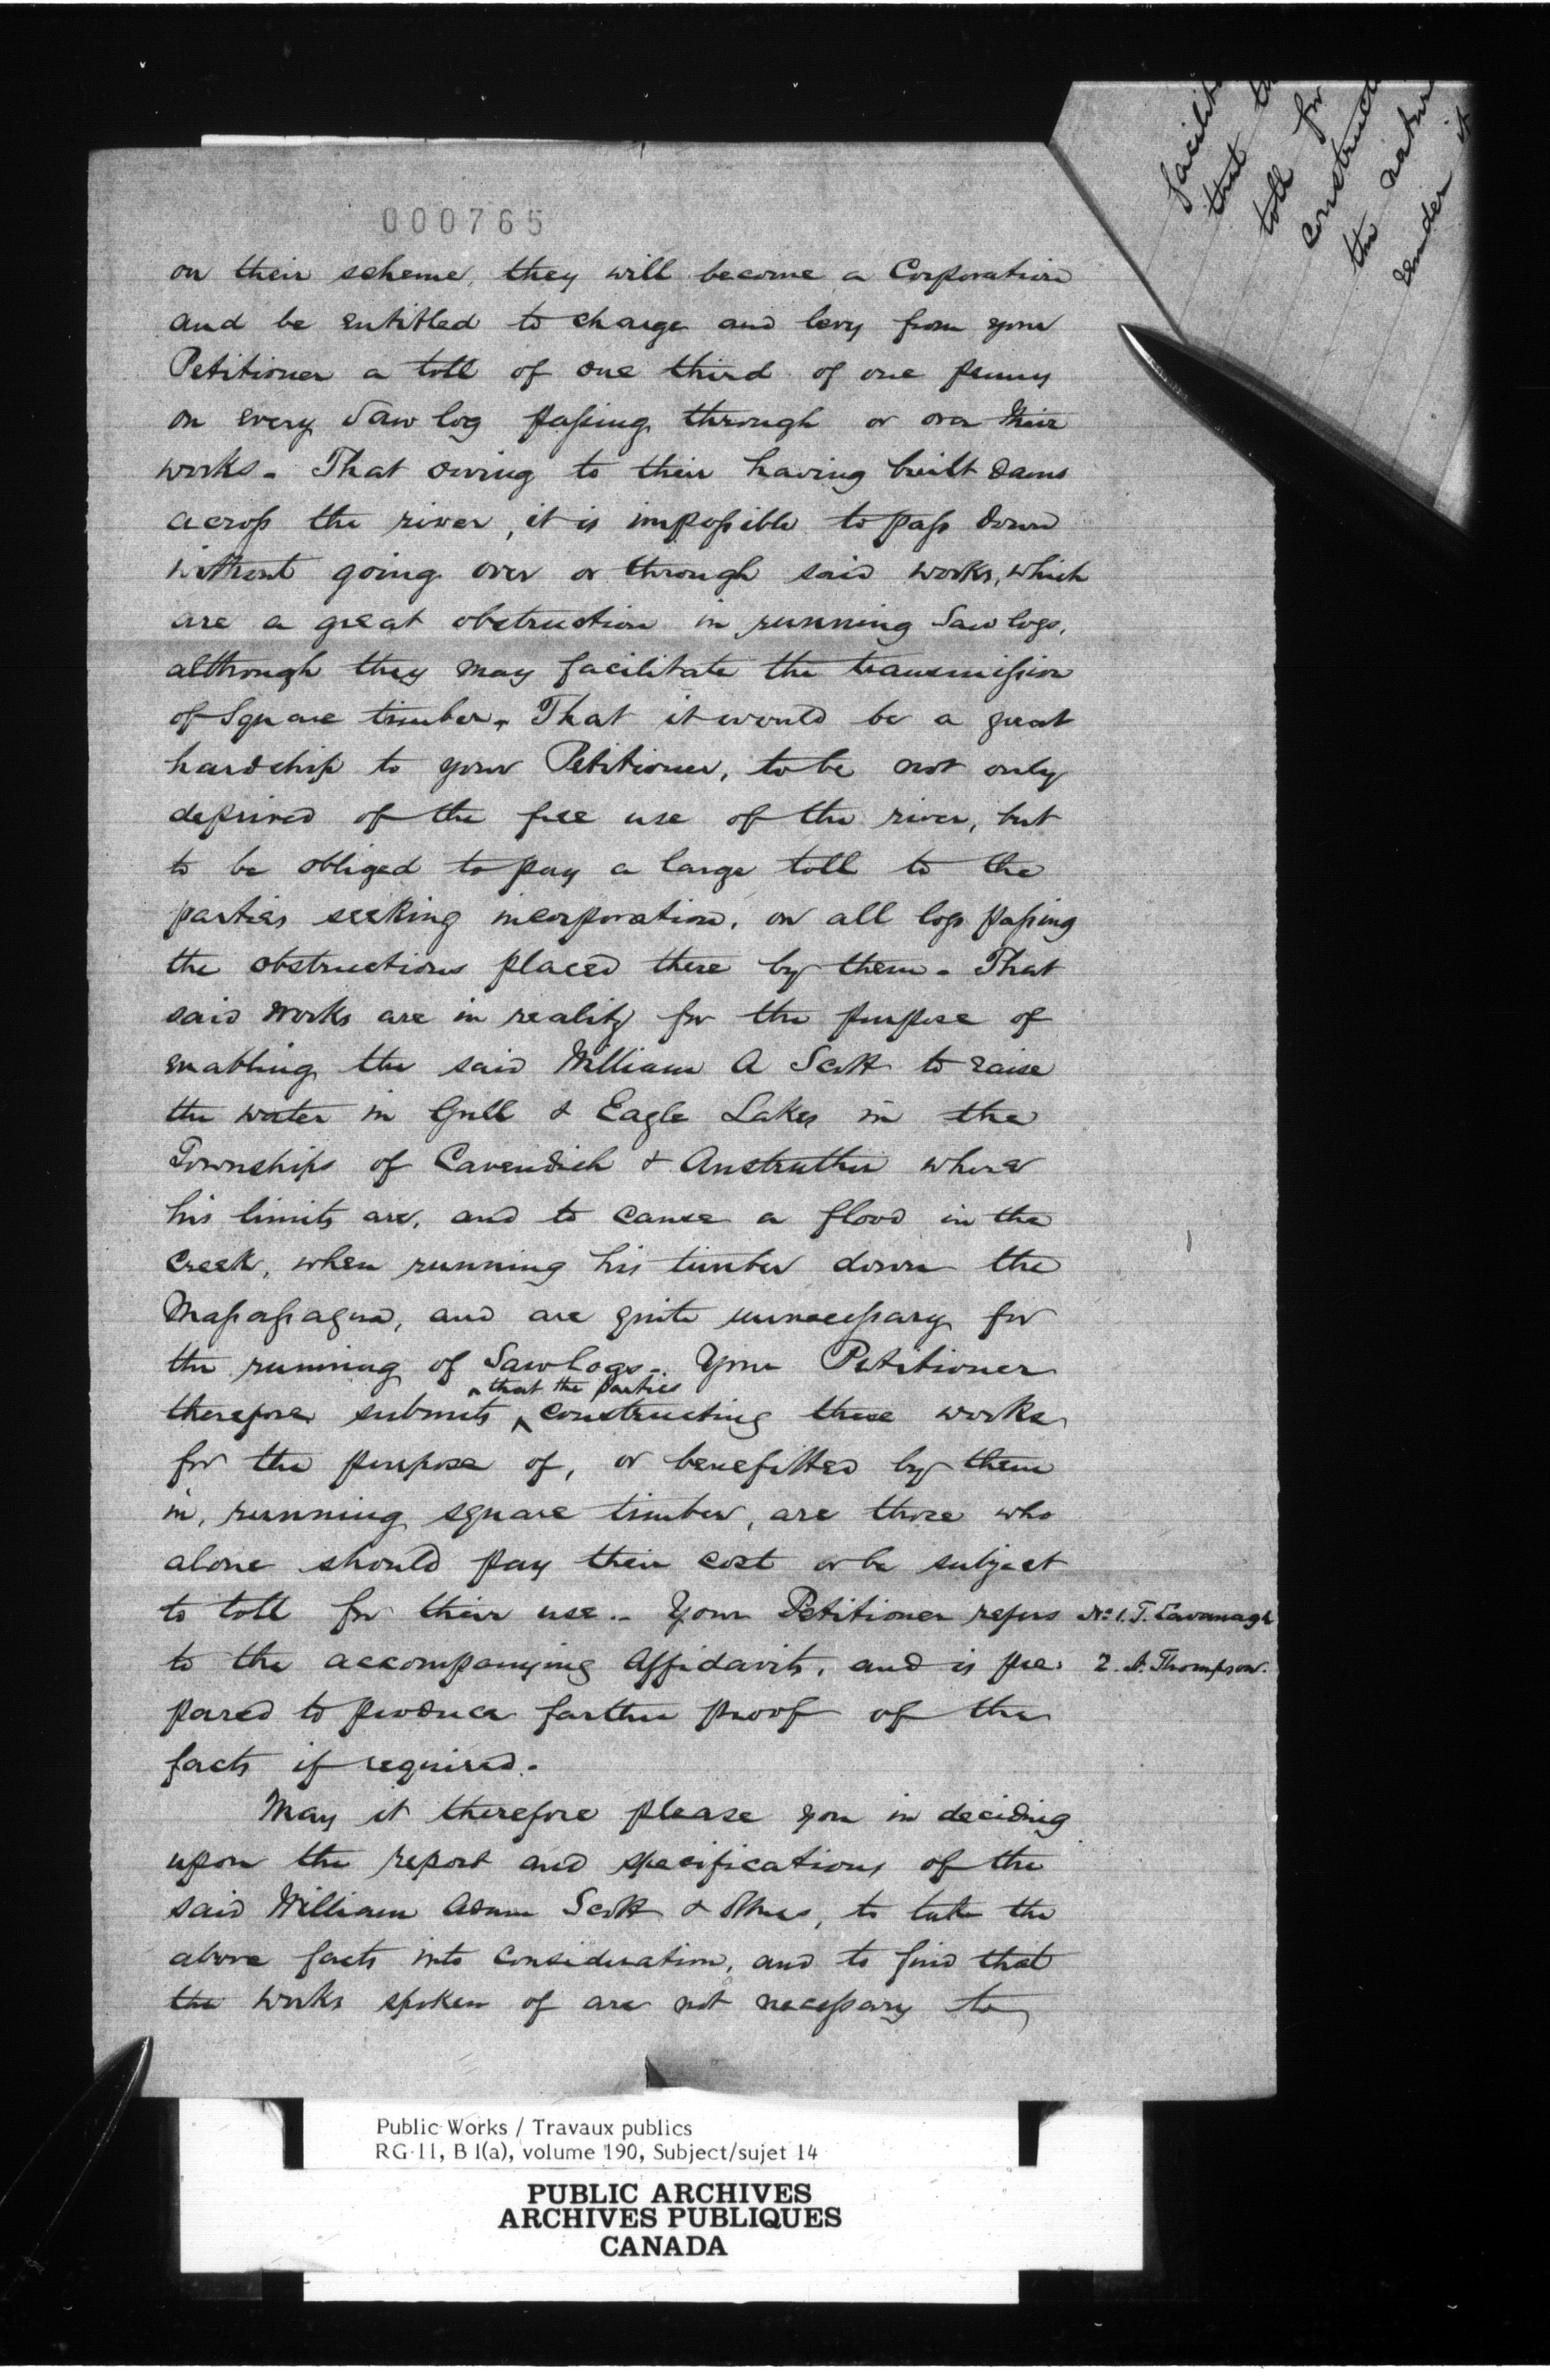 000765
on their scheme, they will become a Corporation
and be entitled to charge and levy from your
Petitioner a toll of one third of one penny
on every Saw log passing through or over their
works. That owing to their having built dams
across the river, it is impossible to pass down
without going over or through said works, which
are a great obstruction in running Saw logs,
although they may facilitate the transmission
of Square timber. That it would be a great
hardship to your Petitioner, to be not only
deprived of the free use of the river, but
to be obliged to pay a large toll to the
parties seeking incorporation, on all logs passing
the obstructions placed there by them. That
said works are in reality for the purpose of
enabling the said William A Scott to raise
the water in Gull & Eagle Lakes in the
Townships of Cavendish & Anstruther where
his limits are, and to cause a flood in the
Creek, when running his timber down the
Massassagua, and are quite unnecessary for
the running of Sawlogs. Your Petitioner
that the parties
therefore submits constructing these works
for the purpose of, or benefitted by them
in, running square timber, are those who
alone should pay their cost or be subject
to toll for their use.. Your Petitioner refers No 1. T. Cavanagh
to the accompanying Affidavits, and is pre- 2. A. Thompson.
pared to produce farther proof of the
facts if required.
May it therefore please you in deciding
upon the report and specifications of the
said William Adam Scott & others, to take the
above facts into consideration, and to find that
the works spoken of are not necessary to
facilit
that th
toll for
construct
the natur
render it
Public Works / Travaux publics
RG 11, B 1(a), volume 190, Subject/sujet 14
PUBLIC ARCHIVES
ARCHIVES PUBLIQUES
CANADA